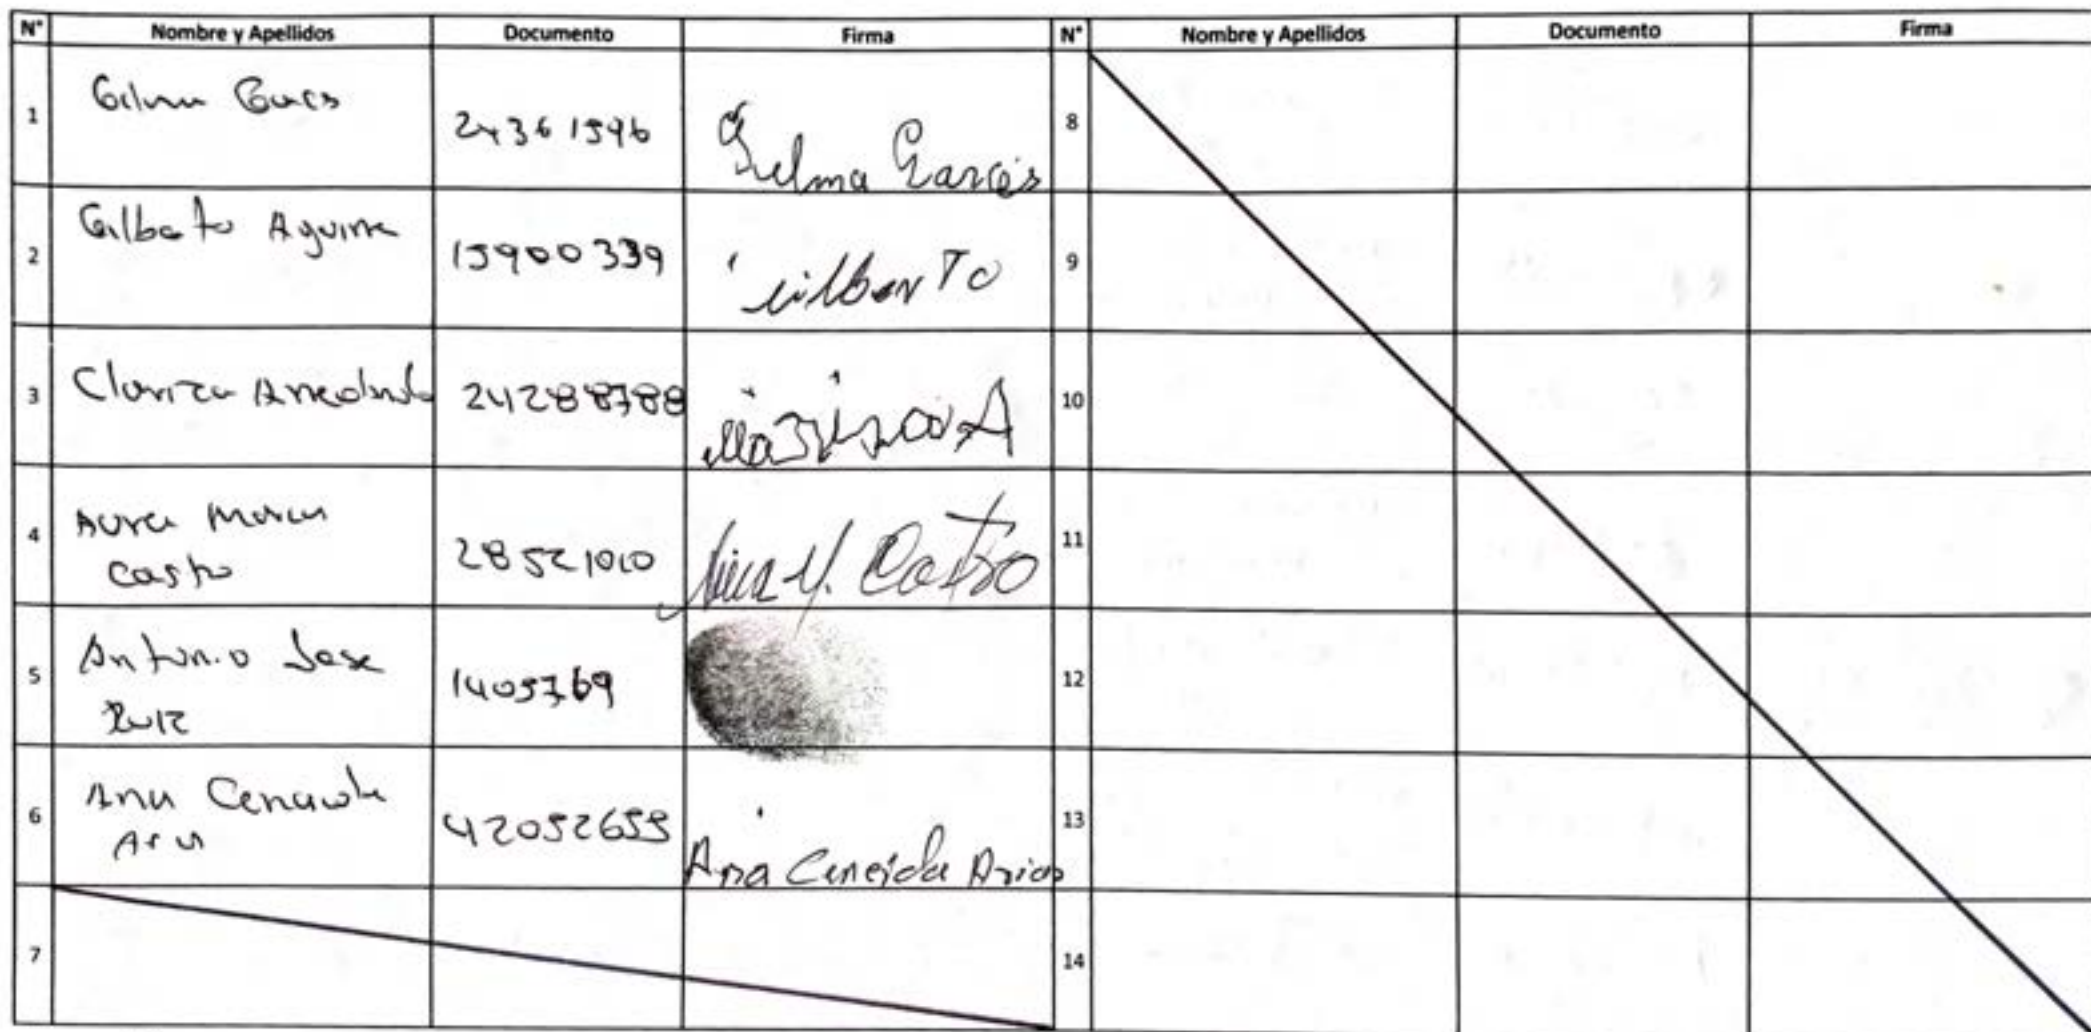 N° Nombre y Apellidos Documento Firma N° Nombre y Apellidos Documento Firma
1 24361596 Garcés 8
2 Gilberto Aguirre 15900339 9
3 Clariza Arredondo 24288788 10
4 Aura Maria
Castro 28521010 M. Castro 11
5 Antonio Jose
Ruiz 1405769 12
6 Ana Ceneida
Arias 42052655 Ana Ceneida Arias 13
7 14